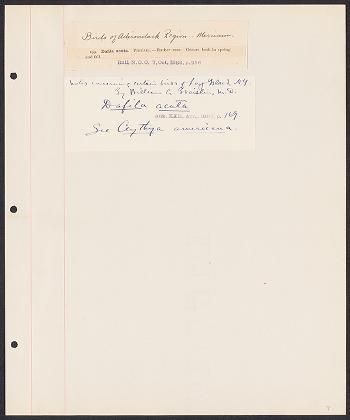 Birds of Adirondack Region. Merriam.
199. Dafila acuta. Pintail.—Rather rare. Occurs both in spring
and fall.
Bull. N.O.C. 7, Oct,
Notes concerning certain birds of Long Island, N.Y.
By William C. Braislin, M.D.
Dafila acuta
p. 169
See Aythya americana.